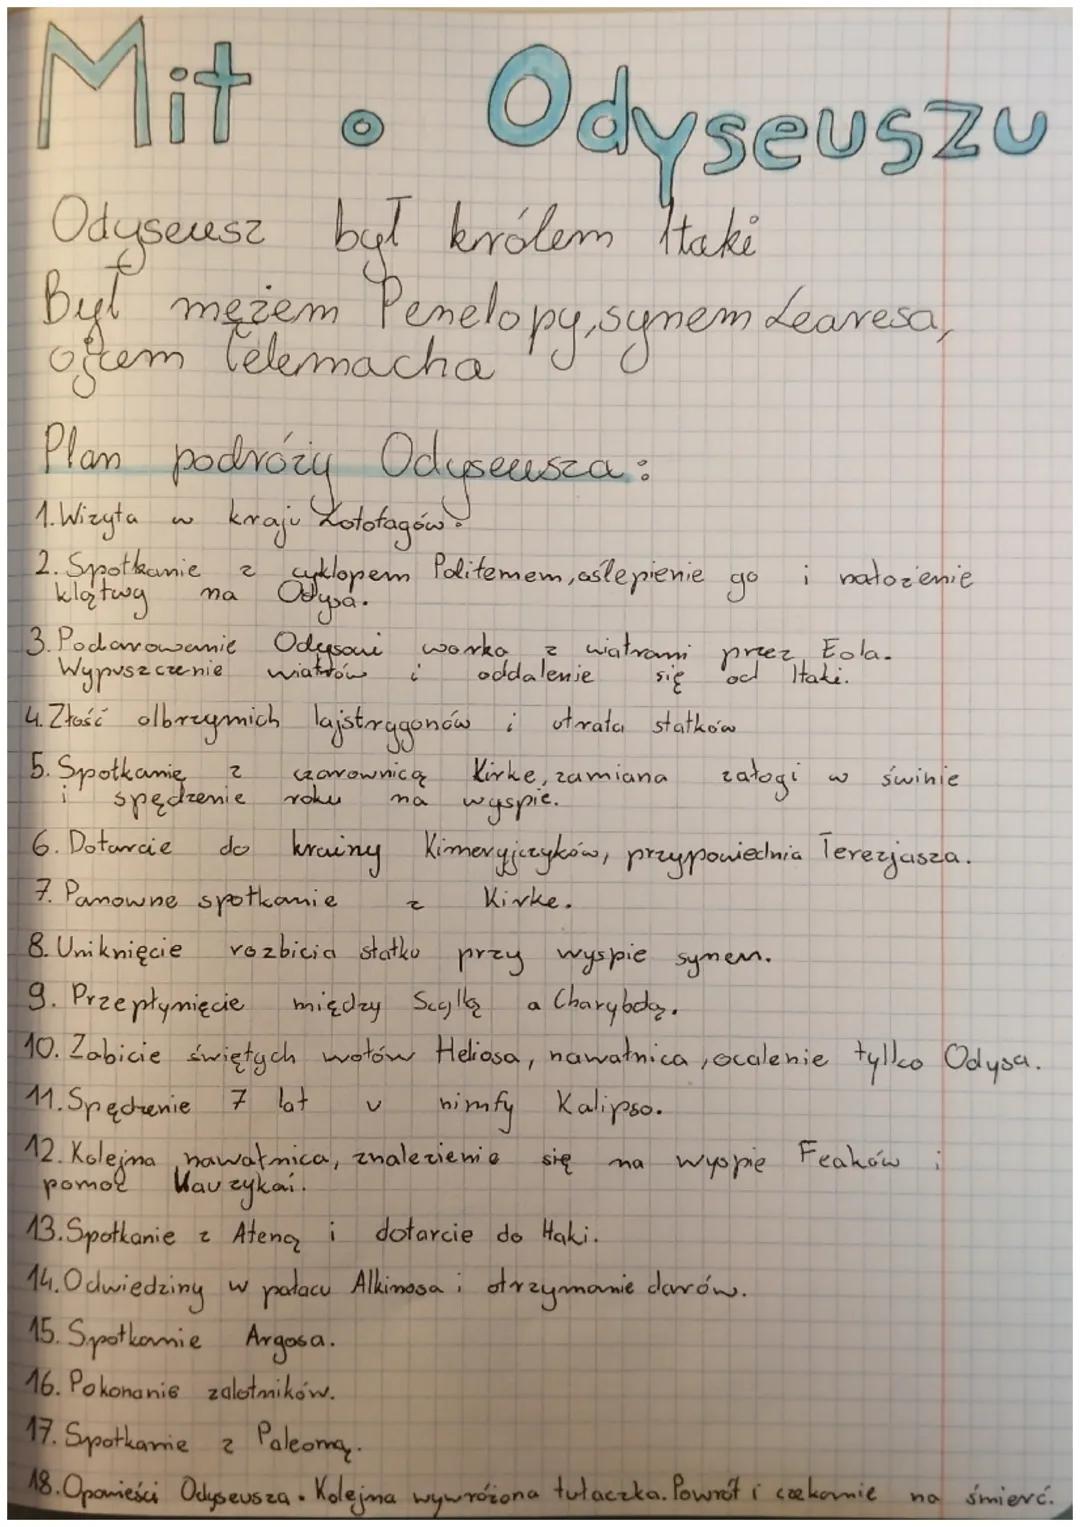 Mit o Odyseuszu
Odyseusz był królem Itaki
Był mężem Penelopy, synem Learesa,
ojcem Telemacha
Plan podróży Odyseusza:
1. Wizyta w kraju Lotofagów.
2. Spotkanie z cyklopem Polifemem, oślepienie go i nałożenie
klątwy na Odysa.
3. Podarowanie Odysowi worka z wiatrami przez Eola.
Wypuszczenie wiatrów i oddalenie się od Itaki.
4. Złość olbrzymich lajstrygonów i utrata statków
5. Spotkanie z czarownicą Kirke, zamiana załogi w świnie
i spędzenie roku na wyspie.
6. Dotarcie do krainy Kimeryjczyków, przypowiednia Terezjasza.
7. Panowne spotkanie z Kirke.
8. Uniknięcie rozbicia statku przy wyspie synem.
9. Przepłynięcie między Scyllą a Charybdą.
10. Zabicie świętych wołów Heliosa, nawałnica, ocalenie tylko Odysa.
11. Spędzenie 7 lat u nimfy Kalipso.
12. Kolejna nawałnica, znalezienie się na wyspie Feaków i
pomoc Nauzykai.
13. Spotkanie z Ateną i dotarcie do Itaki.
14. Odwiedziny w pałacu Alkinosa i otrzymanie darów.
15. Spotkanie Argosa.
16. Pokonanie zalotników.
17. Spotkanie z Paleomą.
18. Opowieści Odyseusza. Kolejna wywróżona tułaczka. Powrót i czekanie na śmierć.